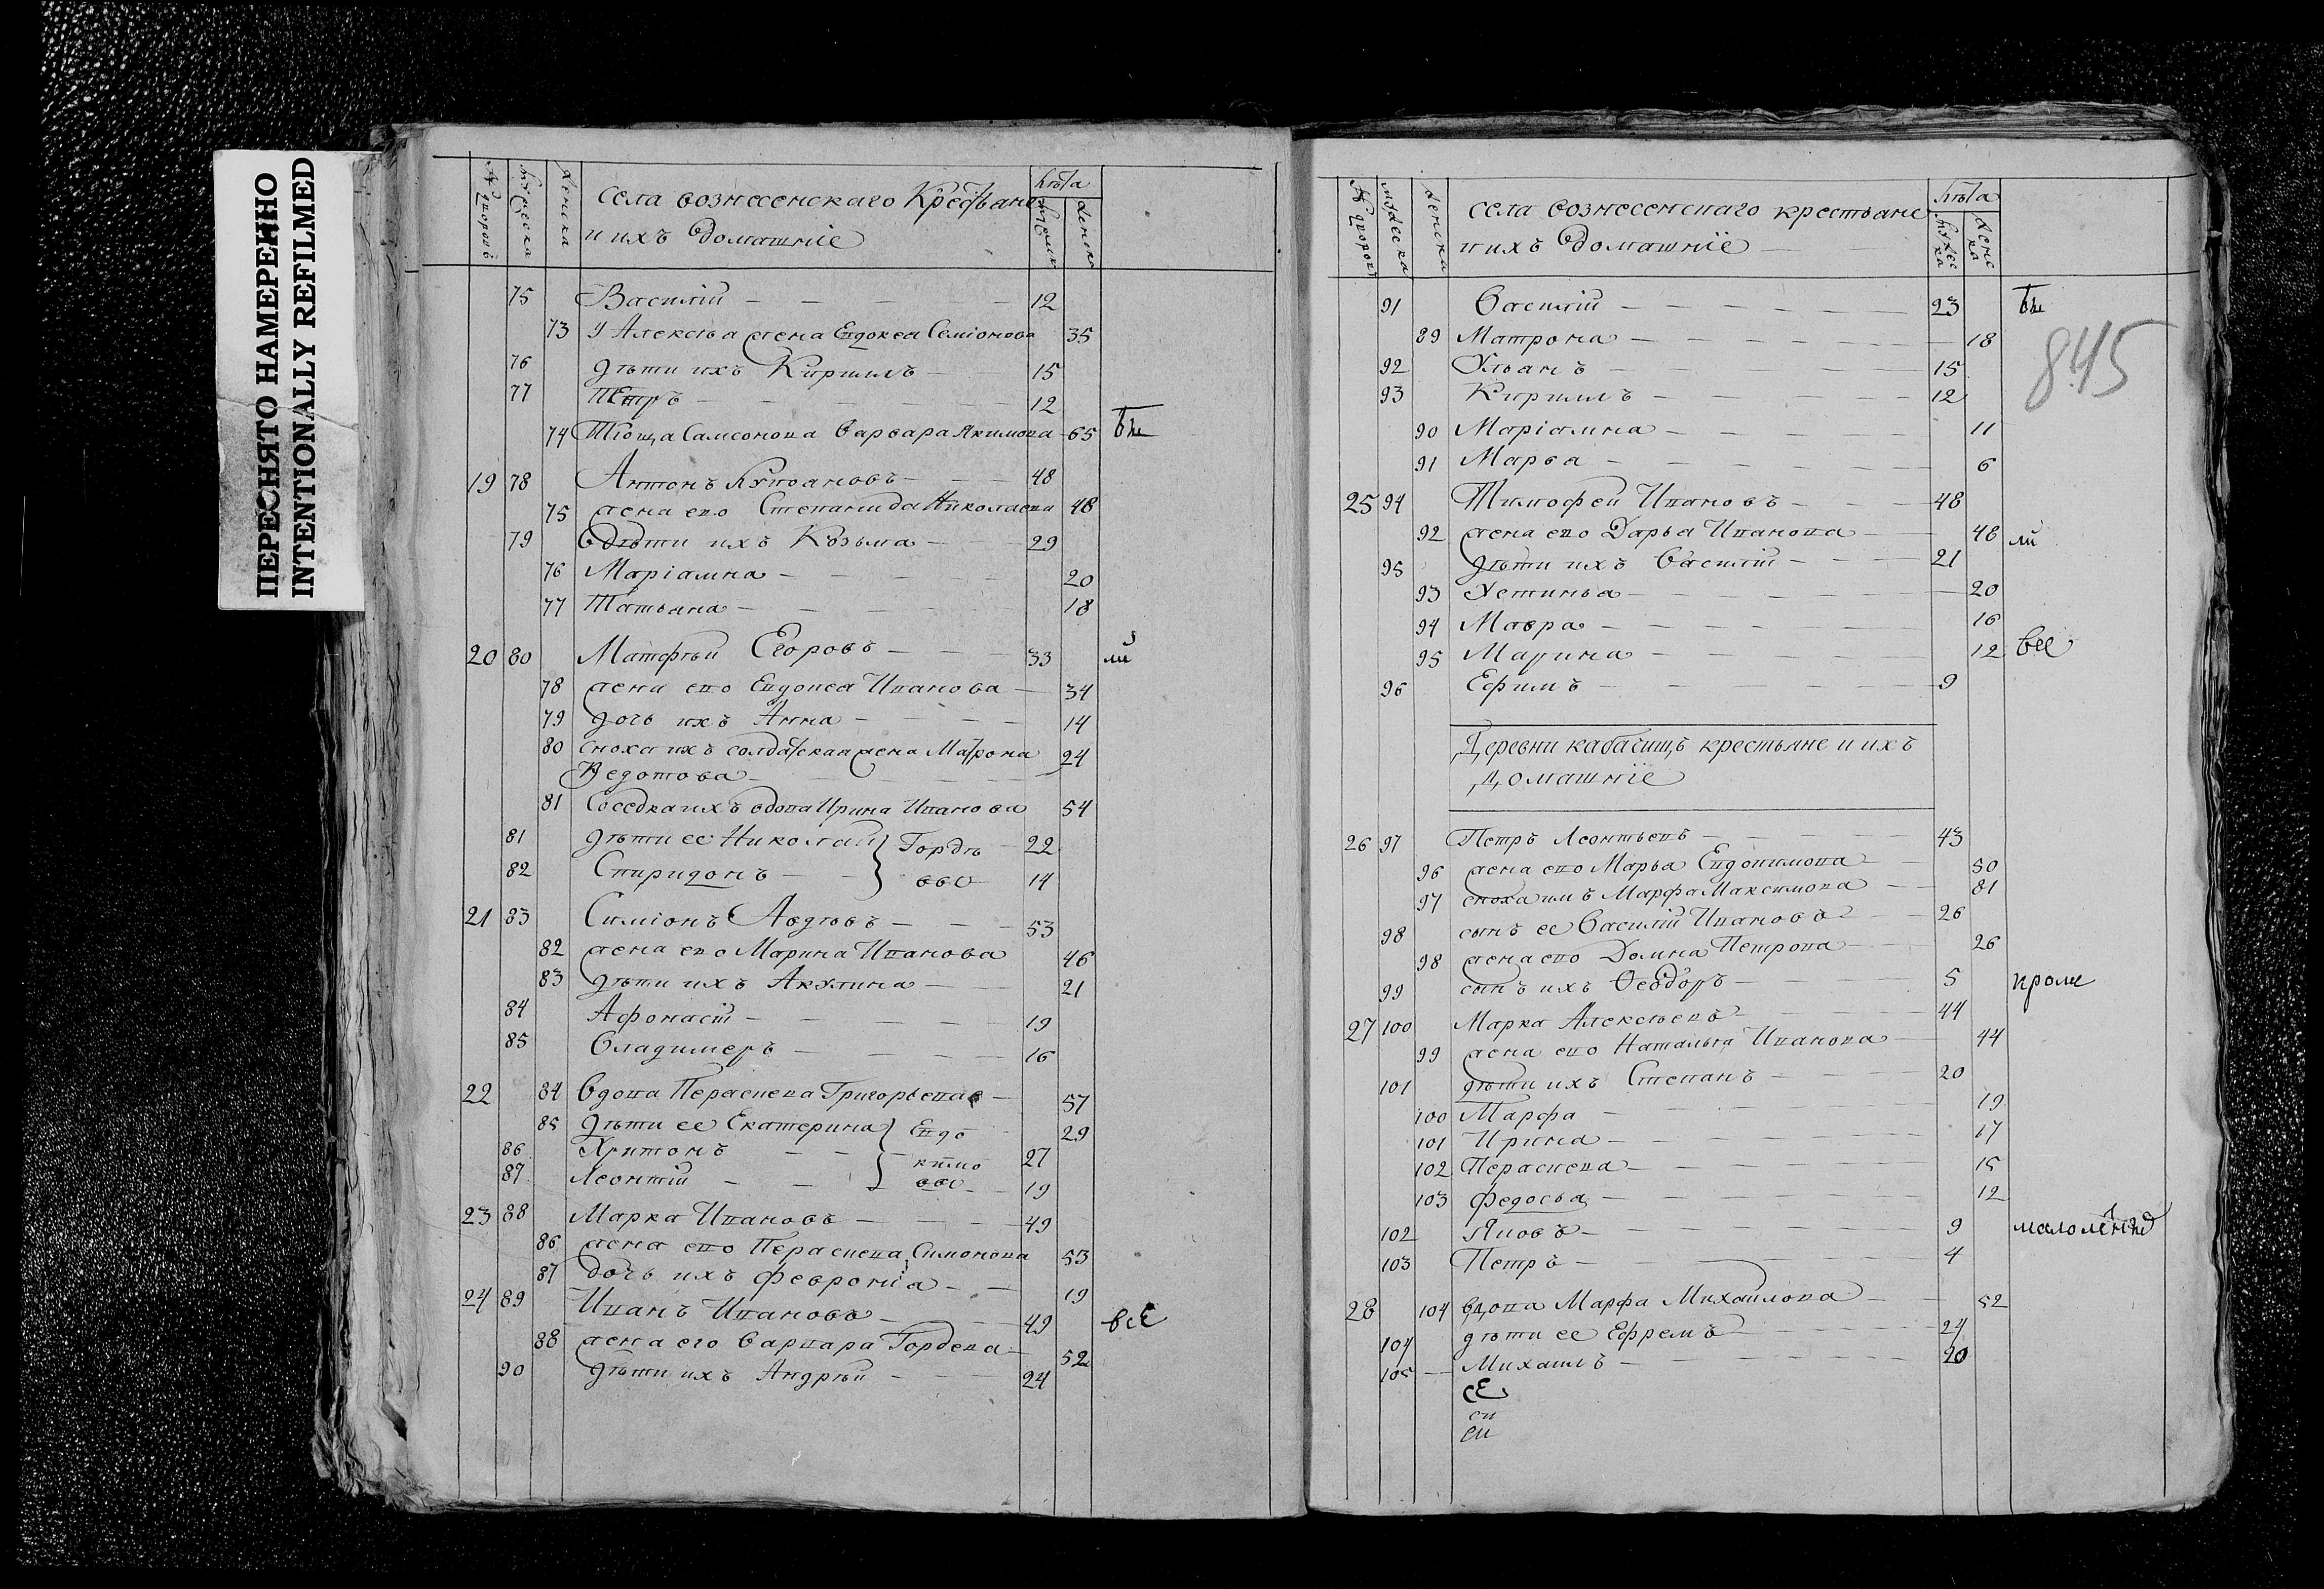 ПЕРЕСНЯТО НАМЕРЕННО
INTENTIONALLY REFILMED
№ дворовъ
мужеска
женска
села вознесенскаго Крестьяне
и ихъ домашніе
лѣта
мужеска
женска
75 Василій 12
73 У Алексѣа жена Евдокеа Семіонова 35
76 дѣти ихъ Кирилъ 15
77 Петръ 12
74 Тіоща Самсонова варвара Якимова 65
19 78 Антонъ Купоановъ 48
75 жена ево Степанида Николаева 48
79 дѣти ихъ Козьма 29
76 Маріамна 20
77 Татьана 18
20 80 Матфѣй Егоровъ 33
78 жена ево Евдокеа Иванова 34
79 дочь ихъ Анна 14
80 сноха ихъ солдатская жена Матрона 24
Ѳедотова
81 Соседка ихъ вдова Ирина Иванова 54
81 дѣти ее Николай } Гордѣ 22
82 Спиридонъ } евы 14
21 83 Симіонъ Авдѣевъ 53
82 жена ево Марина Иванова 46
83 дѣти ихъ Акулина 21
84 Афонасій 19
85 Владимеръ 16
22 84 вдова Пераскева Григорьева 57
85 дѣти ее Екатерина } Евдо 29
86 Харитонъ кимо 27
87 Леонтій } вы 19
23 88 Марка Ивановъ 49
86 жена ево Пераскева Симонова 53
87 дочь ихъ Феврониіа 19
24 89 Иванъ Ивановъ 49 всѣ
88 жена его варвара Гордева 52
90 дѣти ихъ Андрѣй 24
№ дворовъ
мужеска
женска
села вознесенскаго крестьане
и ихъ домашніе
лѣта
мужеска
женска
91 Василій 23
845
89 Матрона 18
92 Ульанъ 15
93 Кирилъ 12
90 Маріамна 11
91 Марьа 6
25 94 Тимофей Ивановъ 48
92 жена ево Дарьа Иванова 48
95 дѣти ихъ Василій 21
93 Устиньа 20
94 Мавра 16
95 Марина 12 все
96 Ефимъ 9
Деревни кабачищъ крестьяне и ихъ
домашніе
26 97 Петръ Леонтьевъ 43
96 жена ево Марьа Евдокимова 50
97 сноха имъ Марфа Максимова 81
98 сынъ ее Василій Ивановъ 26
98 жена ево Домна Петрова 26
99 сынъ ихъ Ѳеодоръ 5 кроме
27 100 Марка Алексѣевъ 44
99 жена ево Наталья Иванова 44
101 дѣти ихъ Степанъ 20
100 Марфа 19
101 Ирина 17
102 Пераскева 15
103 Федосьа 12
102 Яковъ 9 малолетнѣ
103 Петръ 4
28 104 вдова Марфа Михайлова 52
104 дѣти ее Ефремъ 24
105 Михаилъ 20